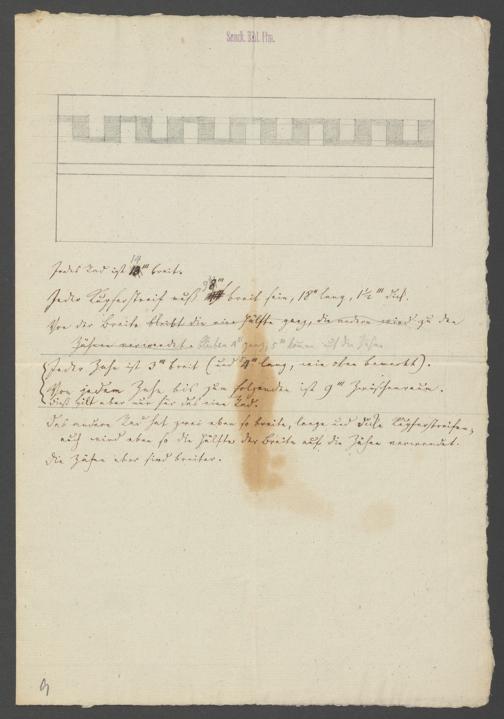 Senck. Bibl. Ffm.
Jedes Rad ist 14''' breit.
Jeder Kupferstreif muß 8''' breit sein, 18" lang, 1½''' dick.
Von der Breite bleibt die eine Hälfte ganz, die andere wird zu den
Zähnen verwendet. 4''' ganz, 5''' kommen auf die Zähne.
Jeder Zahn ist 3''' breit (und 4''' lang, wie oben bemerkt).
Von jedem Zahn bis zum folgenden ist 9''' Zwischenraum.
Dieß gilt aber nur für das eine Rad.
Das andere Rad hat zwei eben so breite, lange und dicke Kupferstreifen,
auch wird eben so die Hälfte der Breite auf die Zähne verwendet.
Die Zähne aber sind breiter.